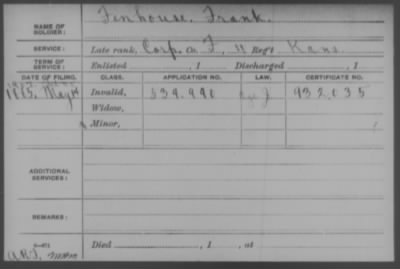 NAME OF SOLDIER: Fenhouse, Frank.
SERVICE: Late rank, Corp. Co. F, 11 Reg't Kans.
TERM OF SERVICE: Enlisted , 1 Discharged , 1
DATE OF FILING. CLASS. APPLICATION NO. LAW. CERTIFICATE NO.
1885, May Invalid, 539.990 932.035
Widow,
Minor,
ADDITIONAL SERVICES:
REMARKS:
Died , 1 , at